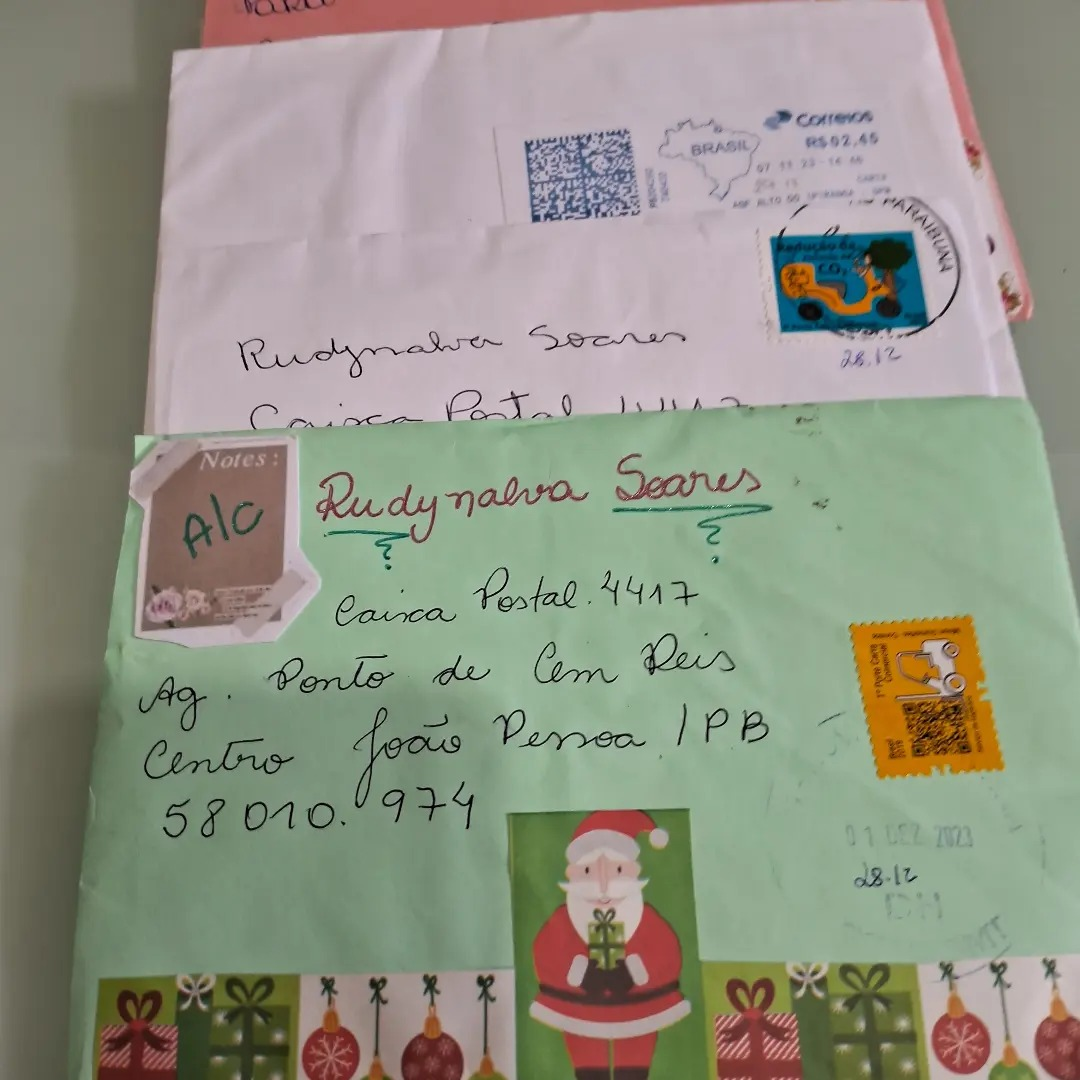 Para
Correios
BRASIL
R$02,45
07 11 23 - 14
CARTA
PARAIBUNA
Redução da
CO₂
28.12
Rudynalva Soares
Caixa Postal 4417
Notes:
A/C
Rudynalva Soares
Caixa Postal. 4417
Ag. Ponto de Cem Reis
Centro João Pessoa /PB
58010.974
1º Porte Carta
Comercial
01 DEZ 2023
28.12
DH